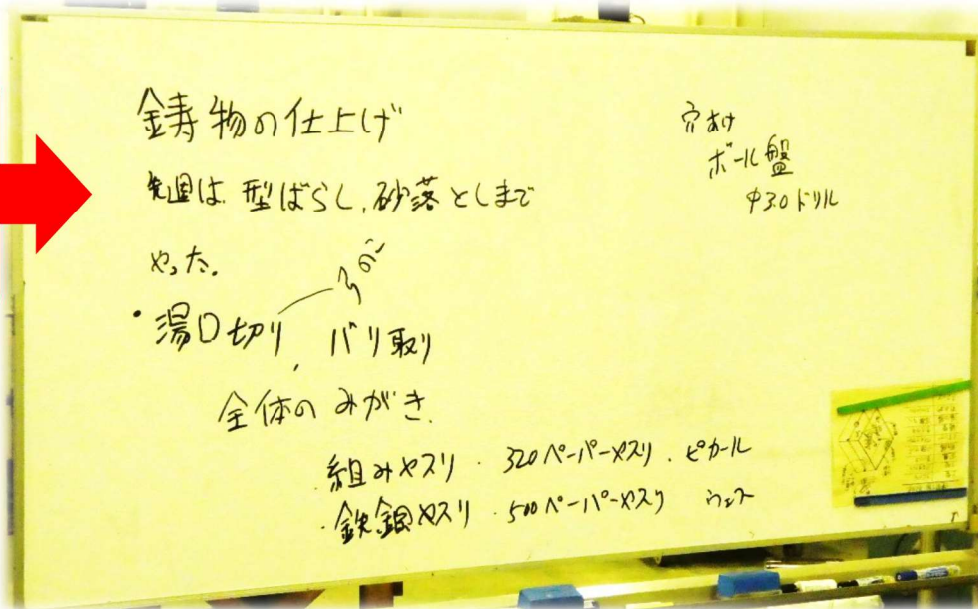 鋳物の仕上げ
先週は、型ばらし、砂落としまで
やった。
・湯口切り バリ取り
全体のみがき
・組みヤスリ ・320ペーパーヤスリ ・ピカール
・鉄鋼ヤスリ ・500ペーパーヤスリ ウェス
穴あけ
ボール盤
φ3.0ドリル